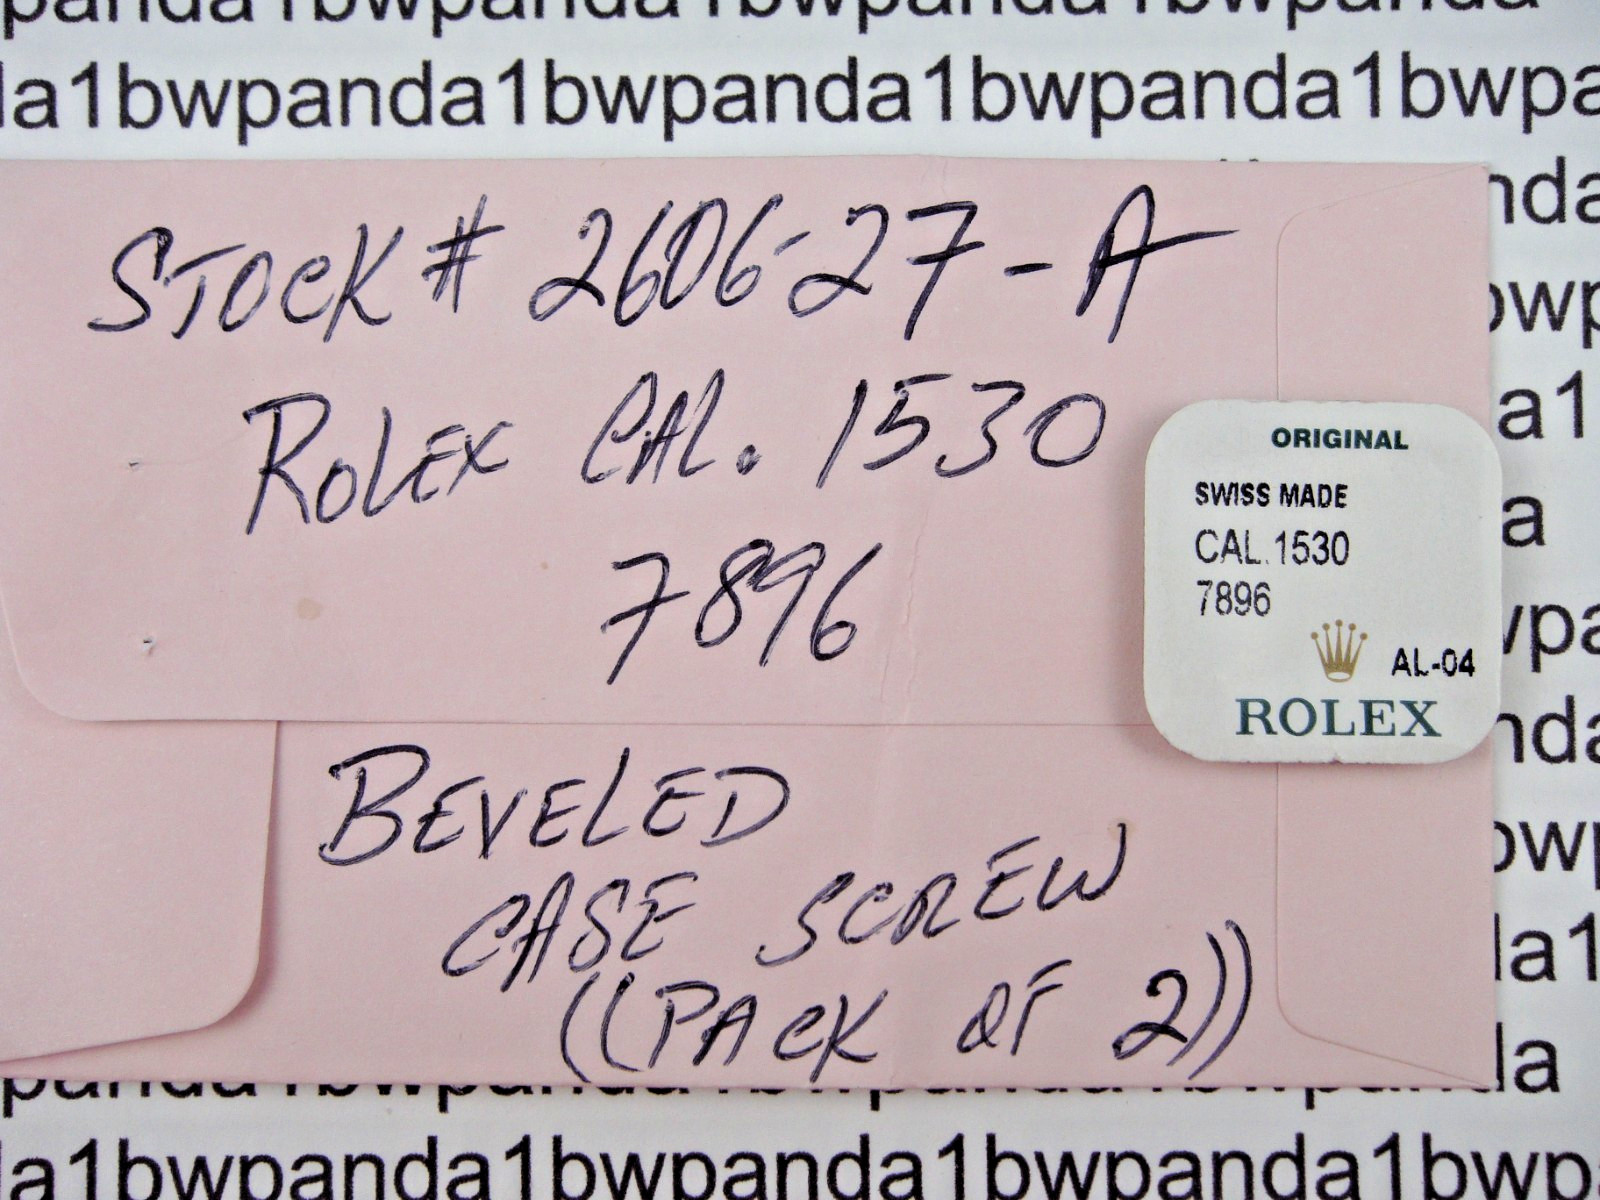 panda1bwpanda1bwpanda1bwpanda
la1bwpanda1bwpanda1bwpanda1bwpa
STOCK # 2606-27-A
nda
ROLEX CAL. 1530
bwp
a1
7896
a
ORIGINAL
SWISS MADE
CAL.1530
7896
AL-04
ROLEX
wpa
nda
BEVELED
bwp
CASE SCREW
la1
((PACK OF 2))
la
panda1bwpanda1bwpanda1bwpanda
da1bwpanda1bwpanda1bwpanda1bwp